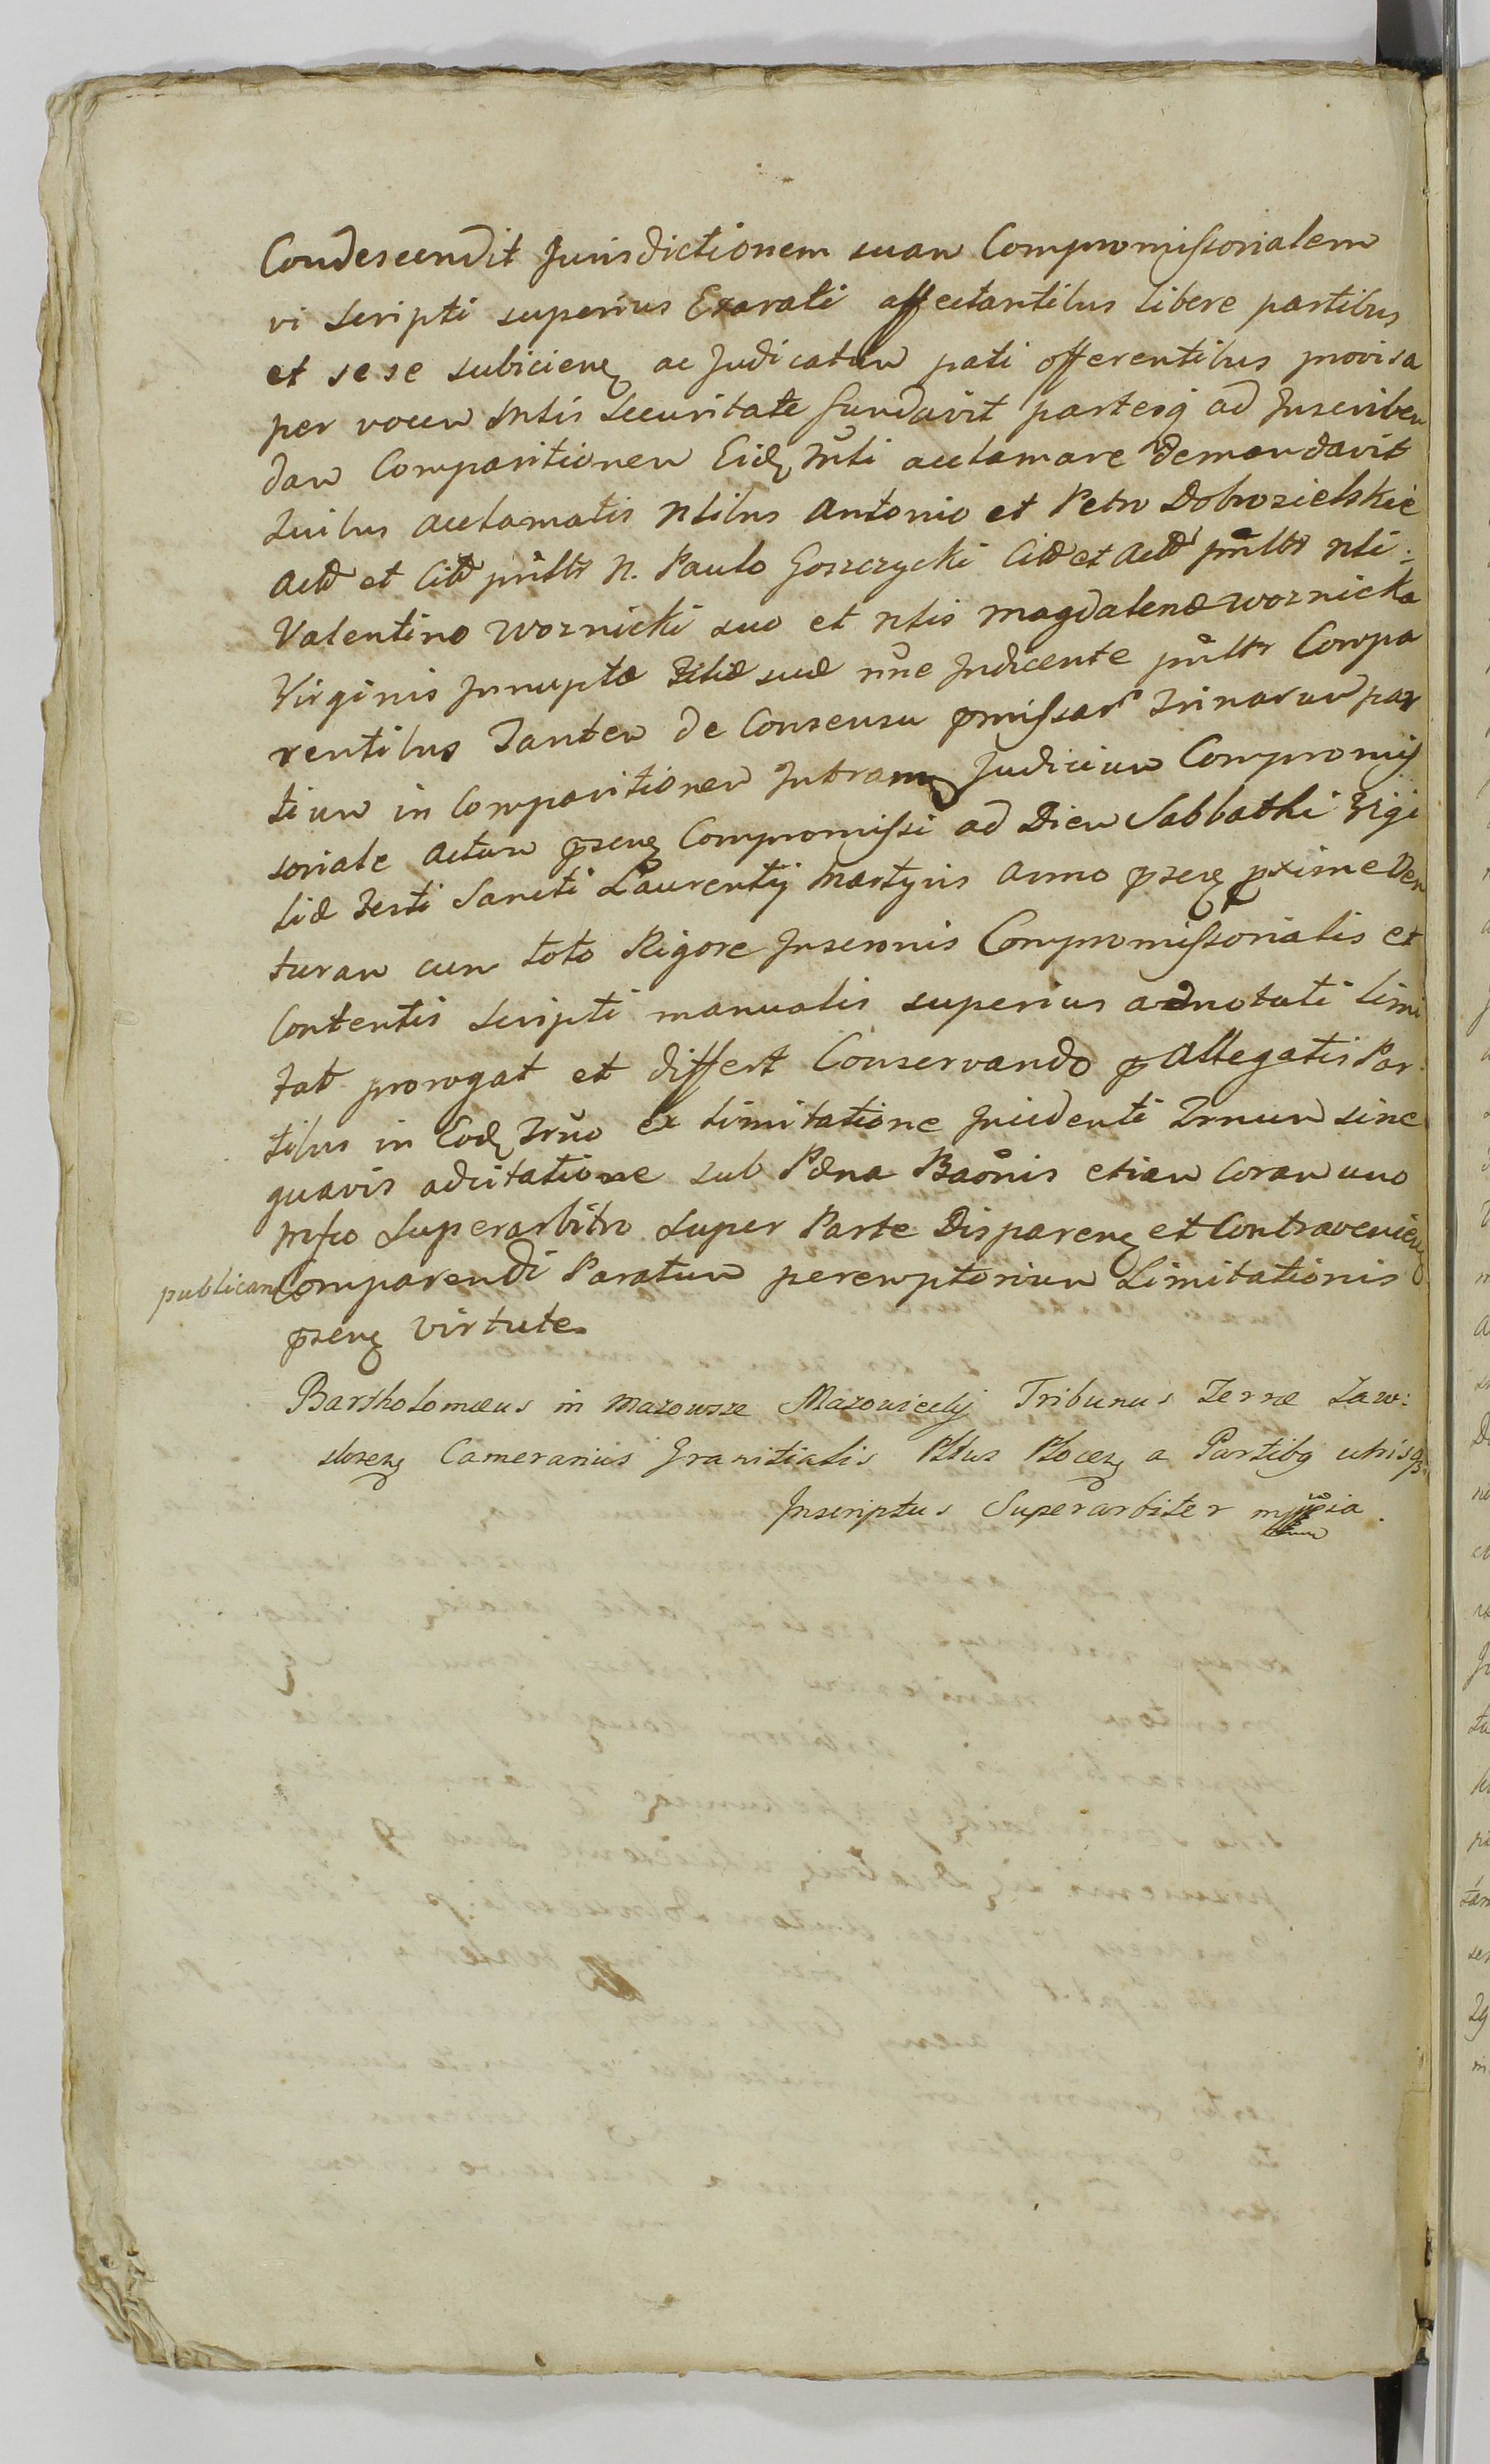 Condescendit Jurisdictionem suam Compromissorialem
vi Scripti superius Exarati affectantibus libere partibus
et sese subicienꝫ ac Judicatum pati offerentibus provisa
per vocem Mtlis Securitate fundavit partesq ad Inscriben
dam Comparitionem Eidꝫ Mtli acclamare demandavit
Quibus acclamatis Ntibus Antonio et Petro Dobrosielskie
Actt et Citt pnltr N. Paulo Goszczycki Citt et Actt pnltr Nli:
Valentino Woznicki suo et Nlis Magdalenæ Woznicka
Virginis Innuptæ Filiæ suæ nne Judicente pnltr Compa
rentibus Tantem de Consensu pmissar Trinarum par
tium in Comparitionem Intranꝫ Judicium Compromis
soriale Actum pzenꝫ Compromissi ad Diem Sabbathi Vigi
liæ Festi Sancti Laurentij Martyris Anno pzenꝫ pxime Ven
turam cum toto Rigore Inscronis Compromissorialis et
Contentis Scripti manualis superius adnotati limi
tat prorogat et differt Conservando pallegatis Par
tibus in Eodꝫ Trno ex limitatione Incidenti Trnum sine
quavis adcitatione sub Pæna Baonis etiam Coram uno
Mfco Superarbitro super Parte Disparenꝫ et Contravenienꝫ
publican Comparendi Paratum peremptorium Limitationis
pzenꝫ virtute.
Bartholomæus in Mazowsze Mazowiecki Tribunus Terræ Zaw:
skrzenꝫ Camerarius Granitialis Pltus Plocenꝫ a Partibq utrisq
Inscriptus Superarbiter mppia